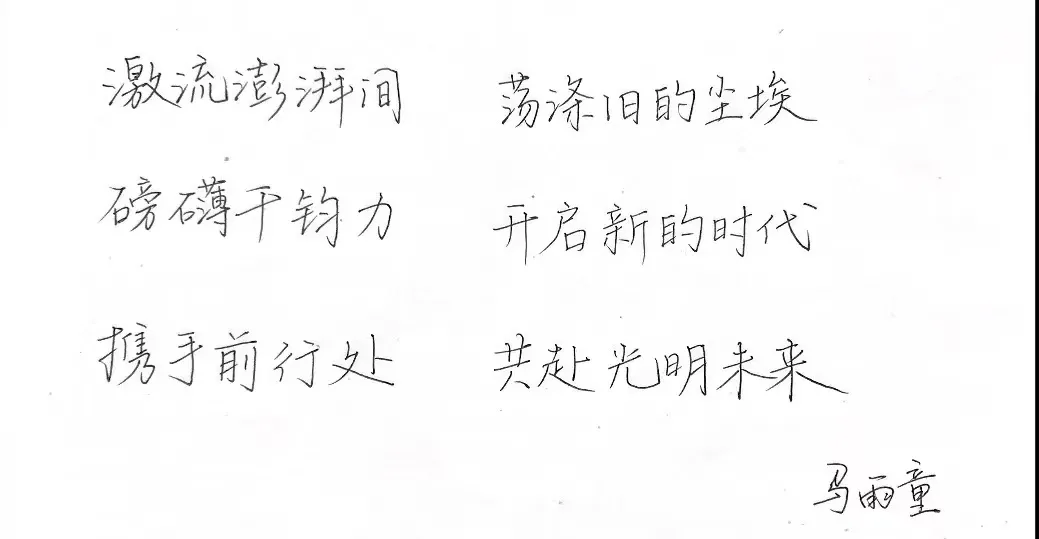 激流澎湃间 荡涤旧的尘埃
磅礴千钧力 开启新的时代
携手前行处 共赴光明未来
马雨童